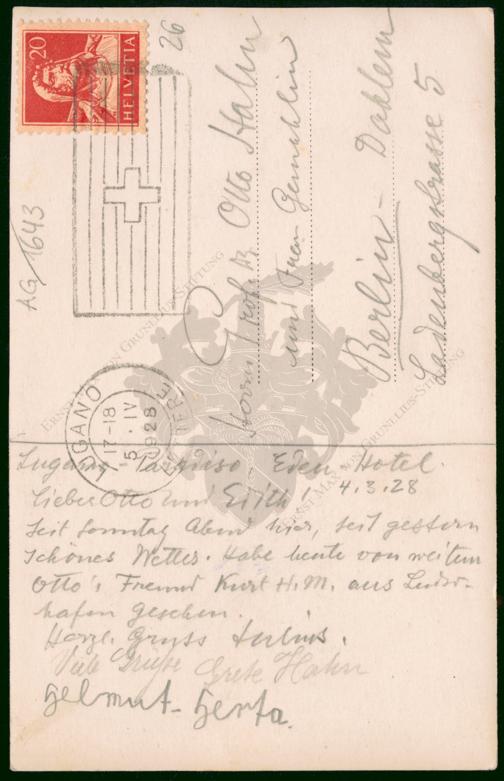 20
HELVETIA
26
AG 1643
LUGANO
17-18
5. IV
1928
Herrn Prof. Dr. Otto Hahn
und Frau Gemahlin
Berlin - Dahlem
Ladenbergstrasse 5
ERNST MAX VON GRUNELIUS-STIFTUNG
ERNST MAX VON GRUNELIUS-STIFTUNG
Lugano-Paradiso Eden-Hotel.
Lieber Otto und Edith! 4.3.28
Seit Sonntag Abend hier, seit gestern
schönes Wetter. Habe heute von weitem
Otto's Freund Kurt H.M. aus Ludw-
hafen gesehen.
Herzl. Gruss Julius.
Viele Grüsse Grete Hahn
Helmut - Herta.